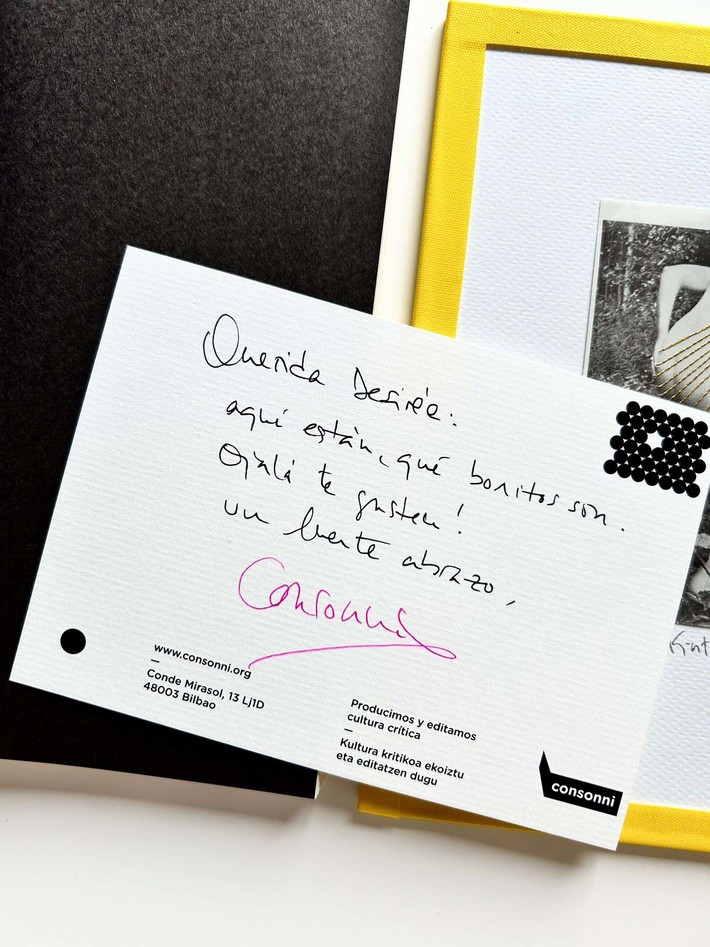 Querida Desirée:
aquí están, qué bonitos son.
Ojalá te gusten!
un fuerte abrazo,
Consonni
www.consonni.org
Conde Mirasol, 13 Lj1D
48003 Bilbao
Producimos y editamos
cultura crítica
Kultura kritikoa ekoiztu
eta editatzen dugu
consonni